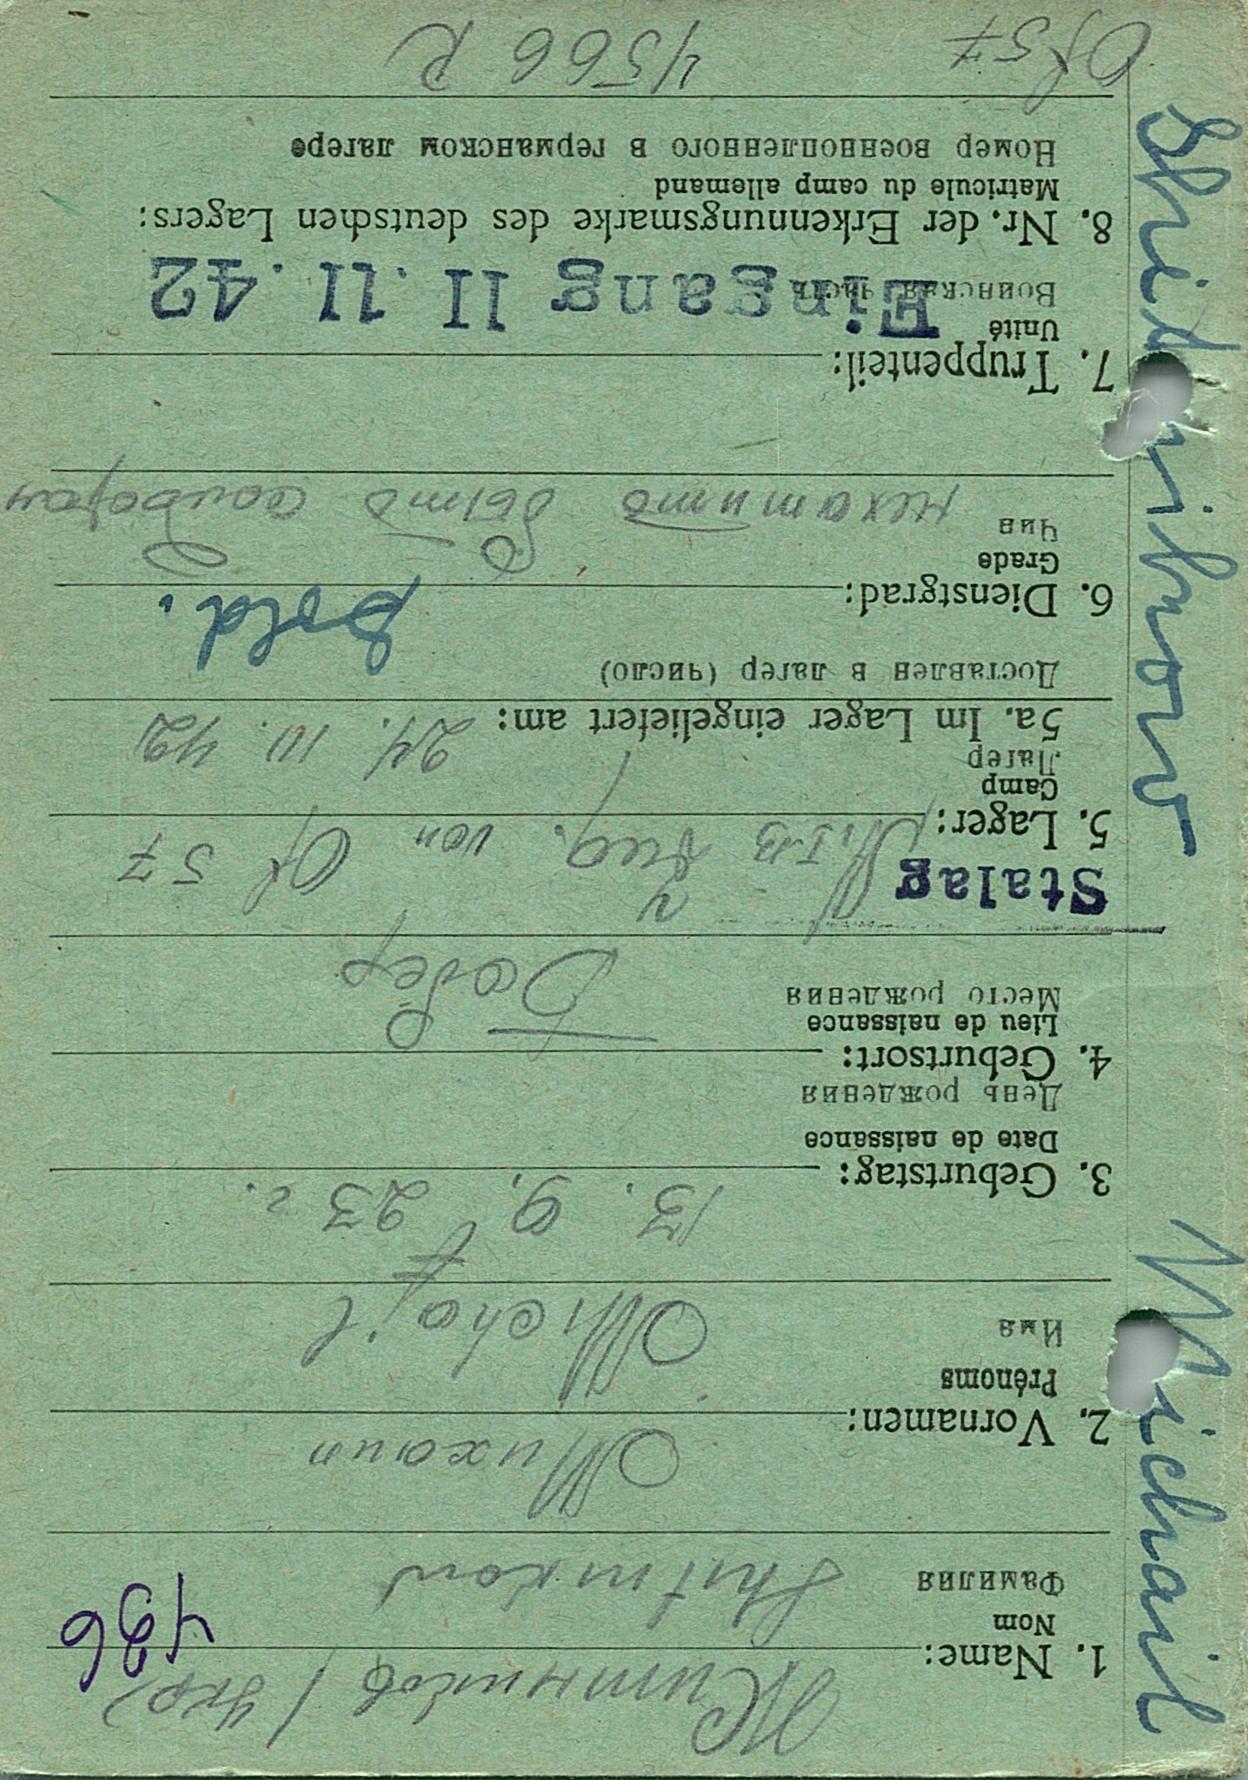 Michail
1. Name: Житников / Укр)
Nom
Фамилия
Shitnikow
496
2. Vornamen: Михаил
Prénoms
Имя
Michajl
3. Geburtstag: 13. 9. 23 г.
Date de naissance
День рождения
4. Geburtsort:
Lieu de naissance
Место рождения
Stalag
5. Lager: von Of 57
Camp
Лагерь
5a. Im Lager eingeliefert am: 24. 10. 42
Доставлен в лагер (число)
6. Dienstgrad: Sold.
Grade
Чин
7. Truppenteil:
Unité
Воинская часть
Eingang 11. 11. 42
8. Nr. der Erkennungsmarke des deutschen Lagers:
Matricule du camp allemand
Номер военнопленного в германском лагере
Of 57 4566 R